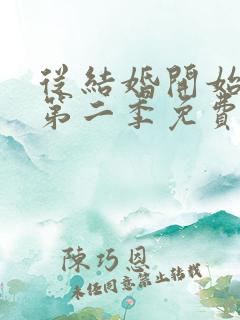 從結婚開始
第二季免費
陳巧恩
未經同意禁止轉載